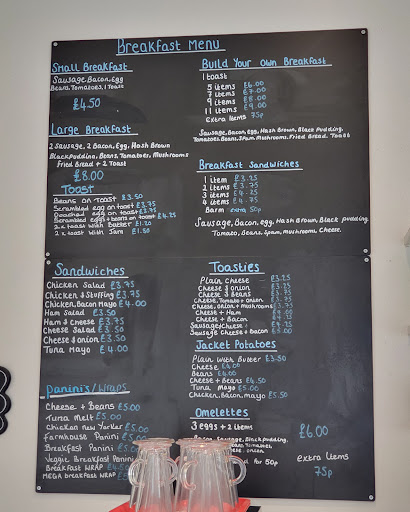 Breakfast Menu
Small Breakfast
Sausage, Bacon, Egg
Beans, Tomatoes, 1 Toast
£4.50
Large Breakfast
2 Sausage, 2 Bacon, Egg, Hash Brown
Black Pudding, Beans, Tomatoes, Mushrooms
Fried Bread + 2 Toast
£8.00
Toast
Beans on Toast £3.50
Scrambled egg on toast £3.75
Poached egg on toast £3.75
Scrambled eggs + beans on toast £4.25
2 x toast with Butter £1.20
2 x toast with Jam £1.50
Build Your Own Breakfast
1 toast
5 items £6.00
7 items £7.00
9 items £8.00
11 items £9.00
Extra Items 75p
Sausage, Bacon, egg, Hash Brown, Black Pudding,
Tomatoes, Beans, Spam, Mushrooms, Fried Bread, Toast
Breakfast Sandwiches
1 item £3.25
2 items £3.75
3 items £4.25
4 items £4.75
Barm extra 50p
Sausage, Bacon, egg, Hash Brown, Black pudding
Tomato, Beans, Spam, mushrooms, Cheese.
Sandwiches
Chicken Salad £3.75
Chicken & Stuffing £3.75
Chicken, Bacon, Mayo £4.00
Ham Salad £3.50
Ham & Cheese £3.75
Cheese Salad £3.50
Cheese & onion £3.50
Tuna Mayo £4.00
Toasties
Plain Cheese £3.25
Cheese & onion
Cheese & Beans
Cheese, Tomato + onion
Cheese, onion + mushrooms
Cheese + Ham
Cheese + Bacon
Sausage, Cheese
Sausage Cheese + Bacon £5.00
Jacket Potatoes
Plain with Butter £3.50
Cheese £4.00
Beans £4.00
Cheese + Beans £4.50
Tuna Mayo £5.00
Chicken, Bacon, mayo £5.50
Panini's/Wraps
Cheese + Beans £5.00
Tuna Melt £5.00
Chicken New Yorker £5.00
Farmhouse Panini £5.00
Breakfast Panini £5.00
Veggie Breakfast Panini
Breakfast WRAP
MEGA breakfast WRAP
Omelettes
3 eggs + 2 items
£6.00
Bacon, Sausage, Black pudding,
Tomatoes,
onion
for 50p
extra Items
75p